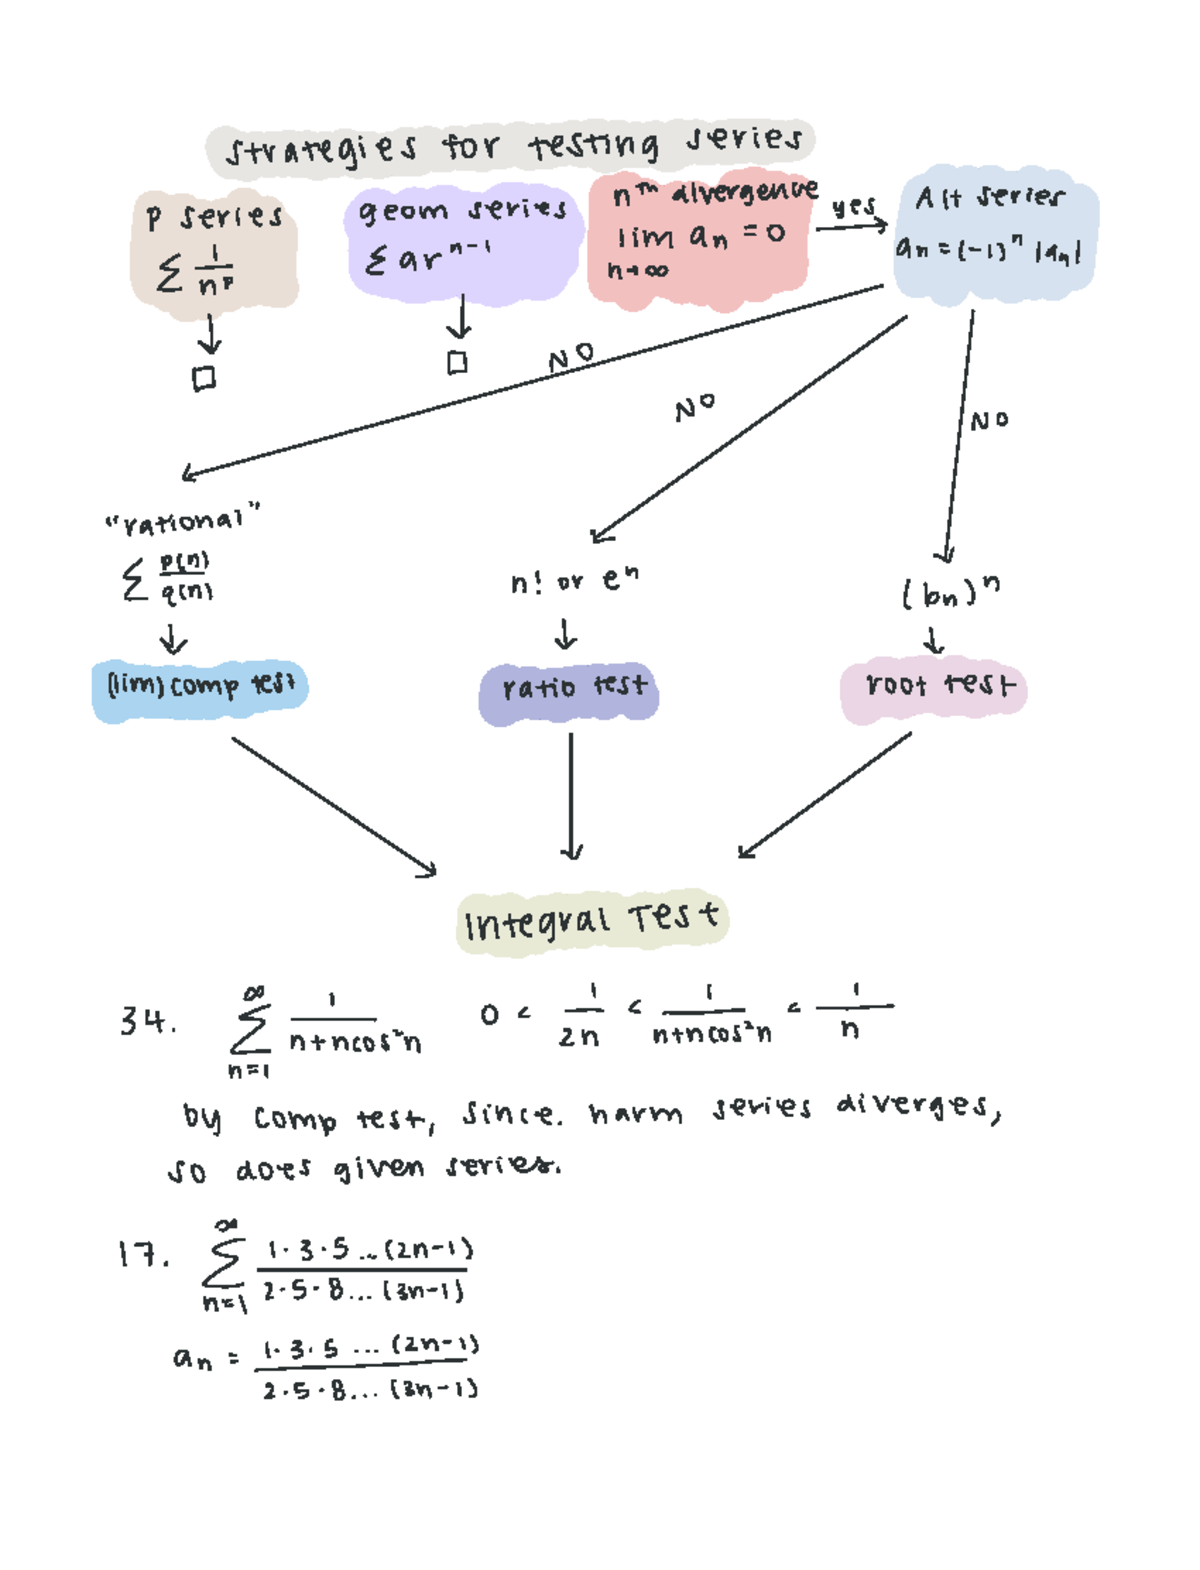 strategies for testing series
P series
∑ 1/n^p
geom series
∑ ar^(n-1)
n^th divergence
lim a_n = 0
n→∞
yes
Alt series
a_n = (-1)^n |a_n|
NO
NO
NO
"rational"
∑ p(n)/q(n)
n! or e^n
(bn)^n
(lim) comp test
ratio test
root test
Integral Test
34. ∑_{n=1}^{∞} 1/(n+ncos²n) 0 < 1/2n < 1/(n+ncos²n) < 1/n
by comp test, since. harm series diverges,
so does given series.
17. ∑_{n=1}^{∞} 1·3·5...(2n-1) / 2·5·8...(3n-1)
a_n = 1·3·5 ... (2n-1) / 2·5·8... (3n-1)